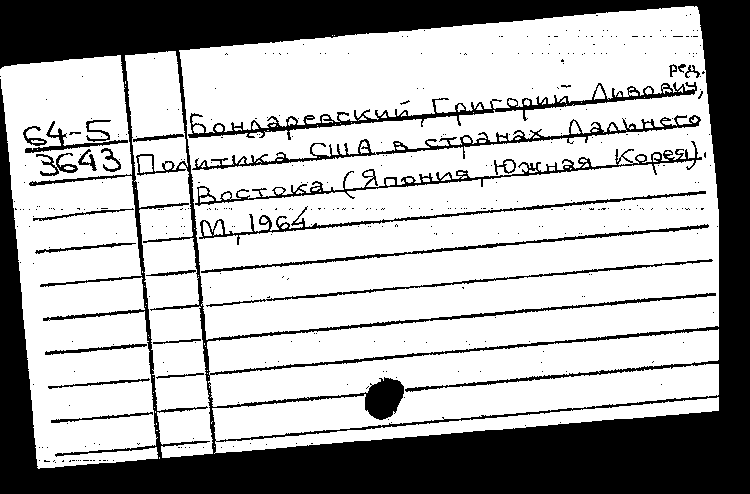 ред.
64-5 Бондаревский, Григорий Львович,
3643 Политика США в странах Дальнего
Востока. (Япония, Южная Корея).
М., 1964.